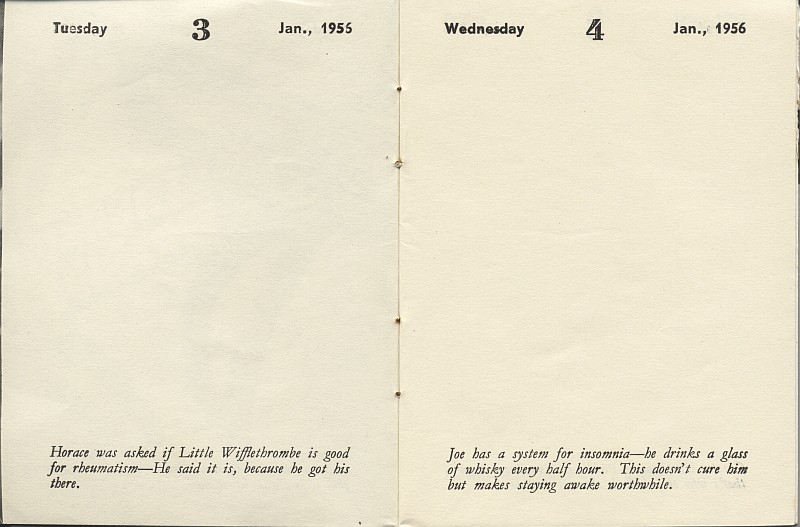 Tuesday 3 Jan., 1956
Horace was asked if Little Wifflethrombe is good
for rheumatism—He said it is, because he got his
there.
Wednesday 4 Jan., 1956
Joe has a system for insomnia—he drinks a glass
of whisky every half hour. This doesn't cure him
but makes staying awake worthwhile.